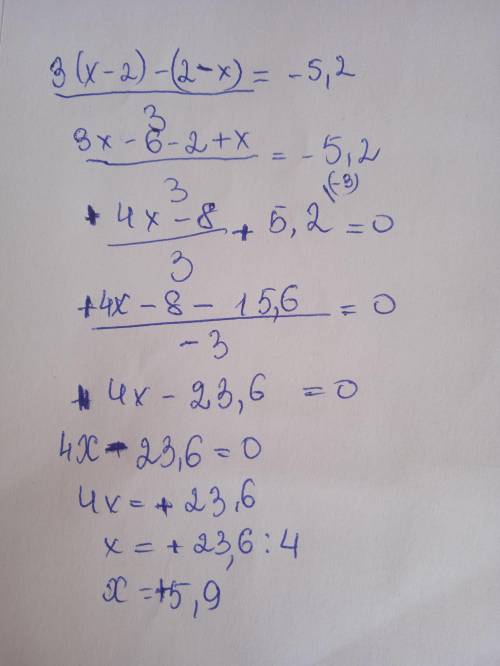 3(x-2)-(2-x) = -5,2
3
3x-6-2+x = -5,2
3
+ 4x-8 + 5,2 = 0
(-3)
3
+4x-8-15,6 = 0
-3
4x-23,6 = 0
4x-23,6=0
4x=+23,6
x=+23,6:4
x=+5,9